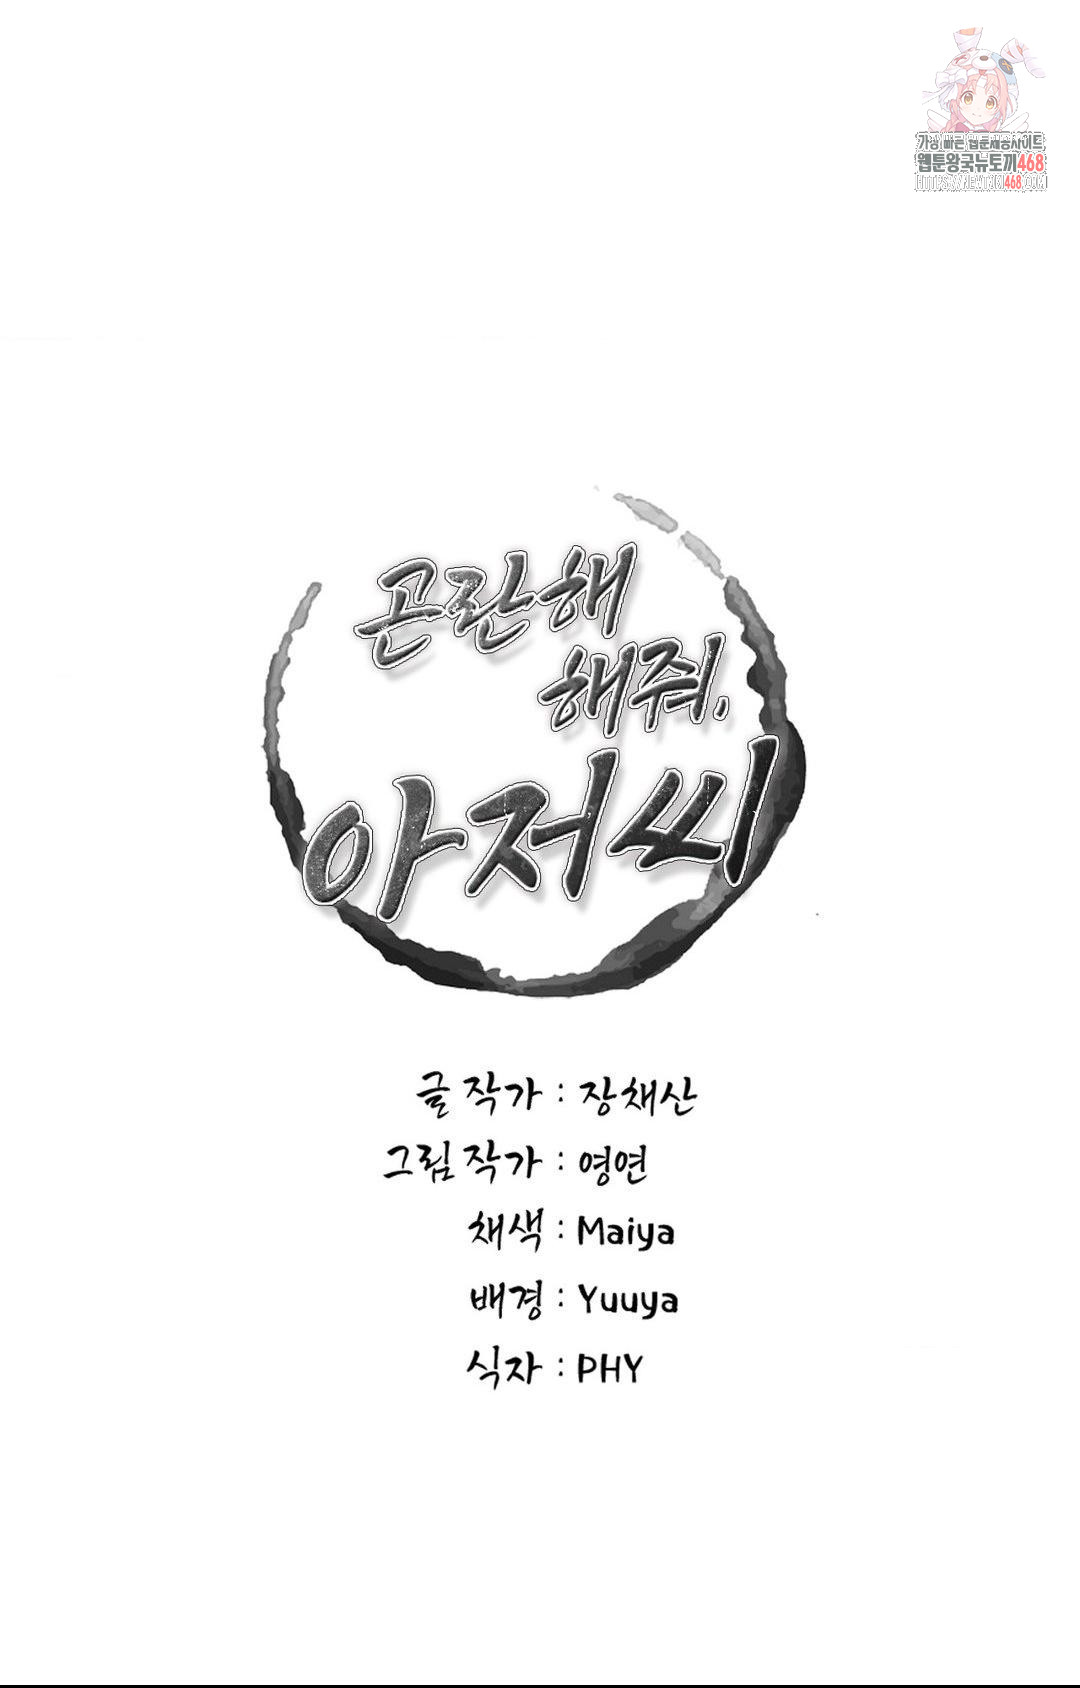 가장 빠른 웹툰제공사이트
웹툰왕국뉴토끼468
HTTPS://NEWTOKI468.COM
곤란해
해줘,
아저씨
글 작가 : 장채산
그림 작가 : 영연
채색 : Maiya
배경 : Yuuya
식자 : PHY